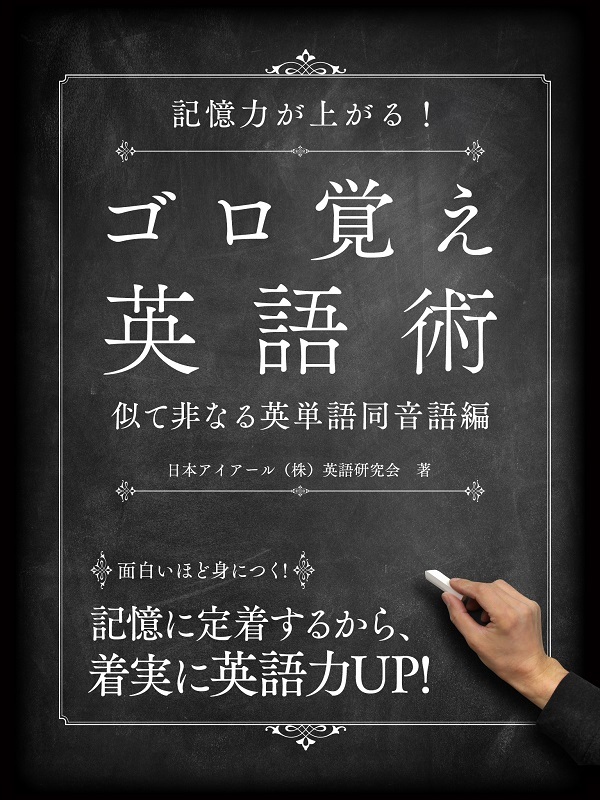 記憶力が上がる！
ゴロ覚え
英語術
似て非なる英単語同音語編
日本アイアール（株）英語研究会　著
面白いほど身につく!
記憶に定着するから、
着実に英語力UP!